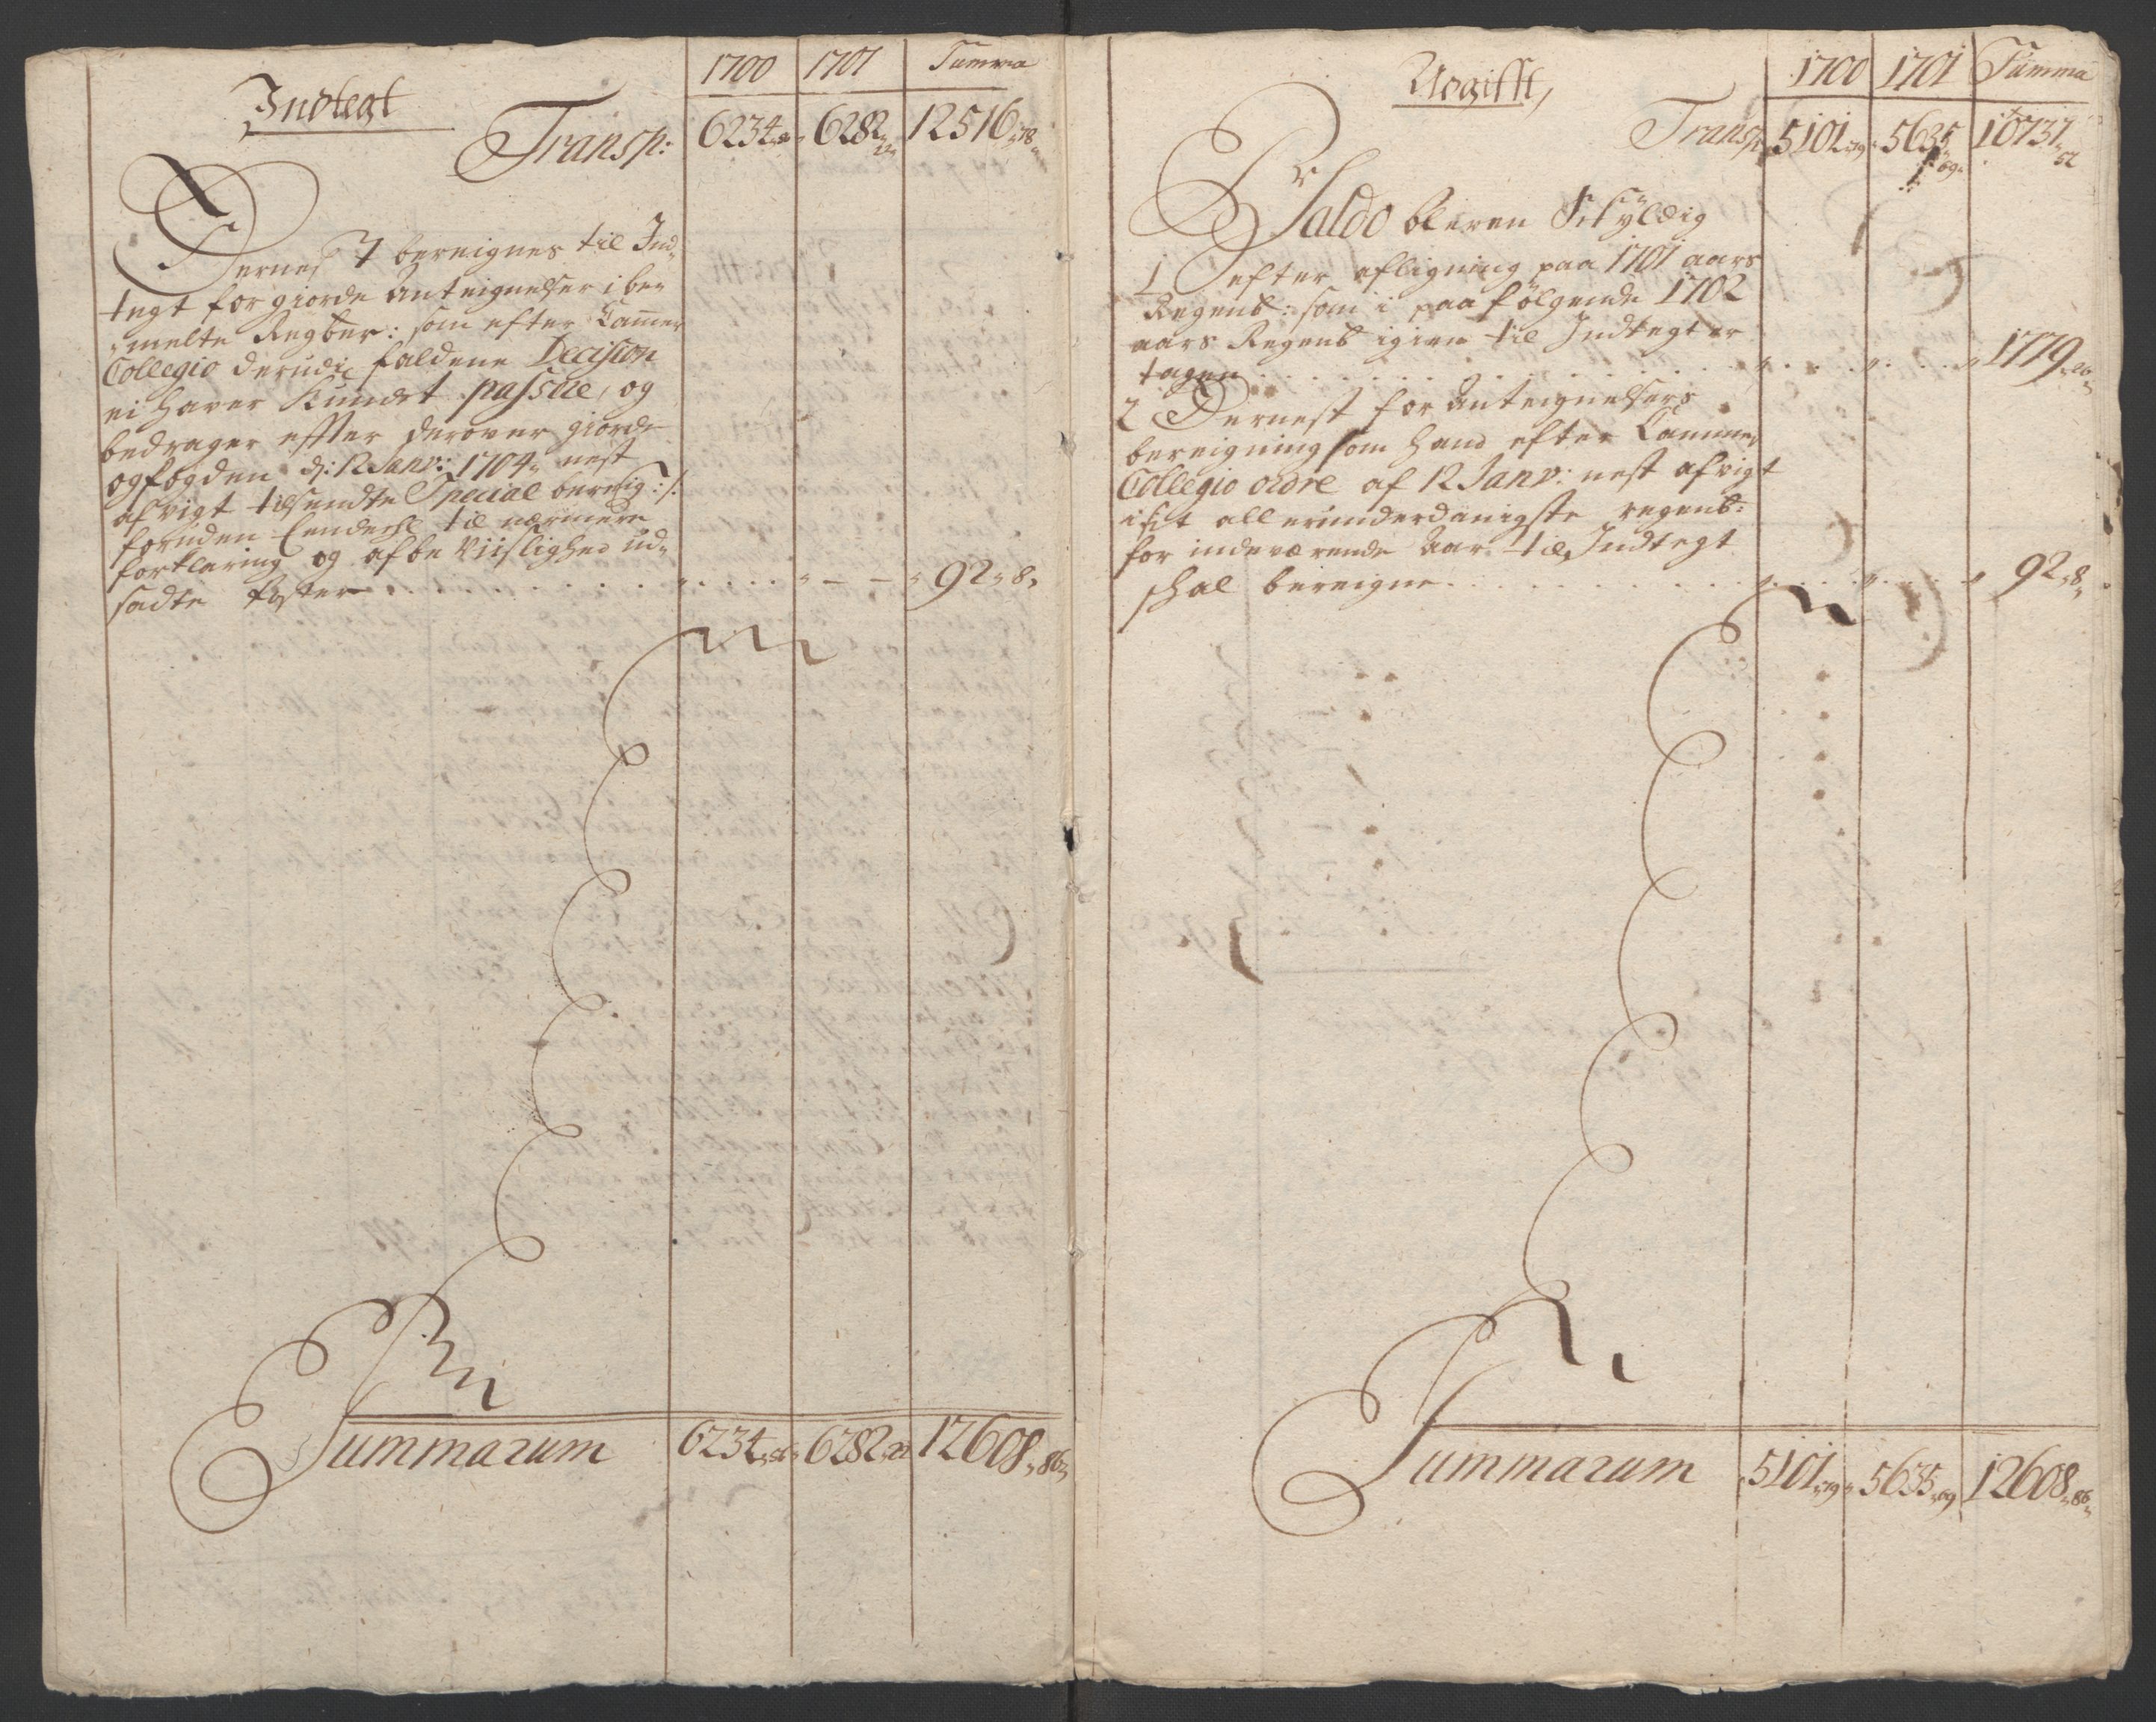 Indtegt
1700 1701 Summa
Transp: 6234 6282 12516 78
Dernest bereignes til Ind-
tegt for giorde Anteignelser i be-
melte Regber: som efter Cammer
Collegio derudi faldene Decision
ei haver kundet passere, og
bedrager effter derover giorde
og fogden d: 12 Janv: 1704 nest
afvigt tilsendte Special bereig:
foruden til nærmere
forklaring og afbeviislighed ud-
sadte poster 92 8
Summarum 6234 6282 22 12608 86
Udgifft,
1700 1701 Summa
Transp 5101 79 5635 69 10737 52
Pr Saldo bleven skÿldig
1 efter afligning paa 1701 aars
Regensk: som i paafølgende 1702
aars Regensk igien til Indtegt er
tagen 1779 26
2 Dernest for Anteignelsers
bereigning som hand efter Cammer
Collegio ordre af 12 Janv: nest afvigt
i sit allerunderdanigste regensk:
for indeværende Aar til Indtegt
schal bereigne 92 8
Summarum 5101 79 5635 69 12608 86